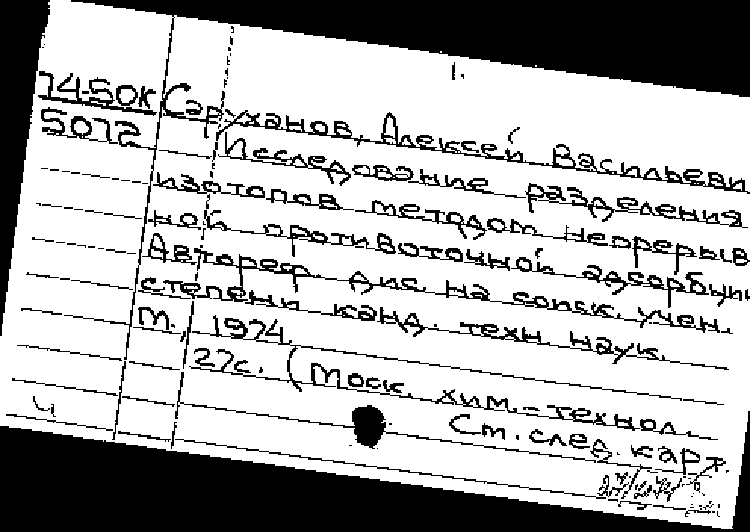 1.
74-50К Саруханов, Алексей Васильеви
5072 Исследование разделения
изотопов методом непрерыв
ной противоточной адсорбции
Автореф. дис. на соиск. учен.
степени канд. техн. наук.
М., 1974.
27с. (Моск. хим.-технол.
Ст. след. карт.
ч